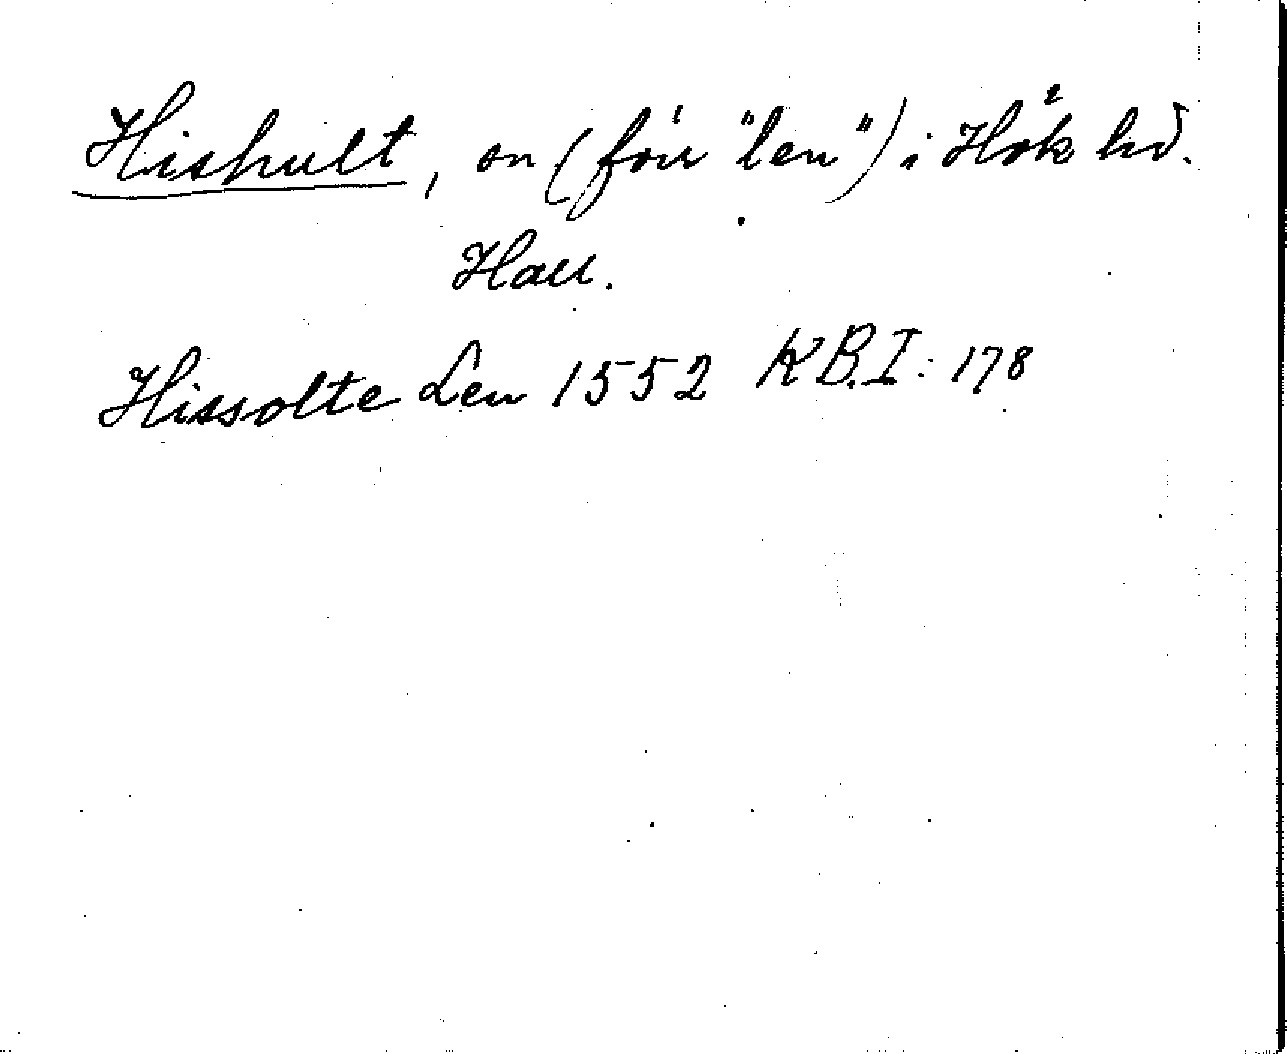 Hishult, sn (förr "len") i Hök hd.
Hall.
Hissolte Len 1552 KB.I: 178